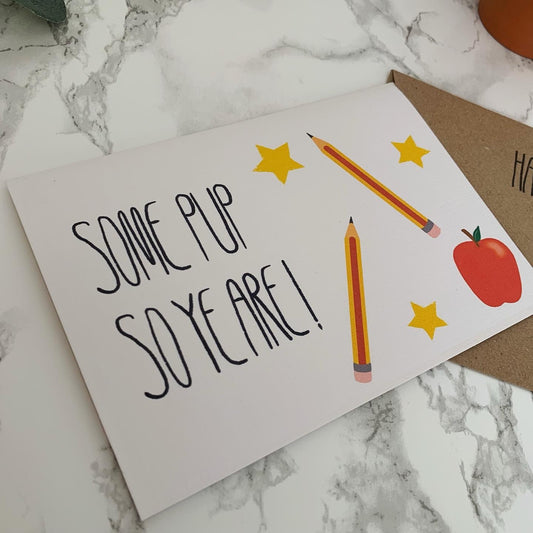 SOME PUP
SO YE ARE!